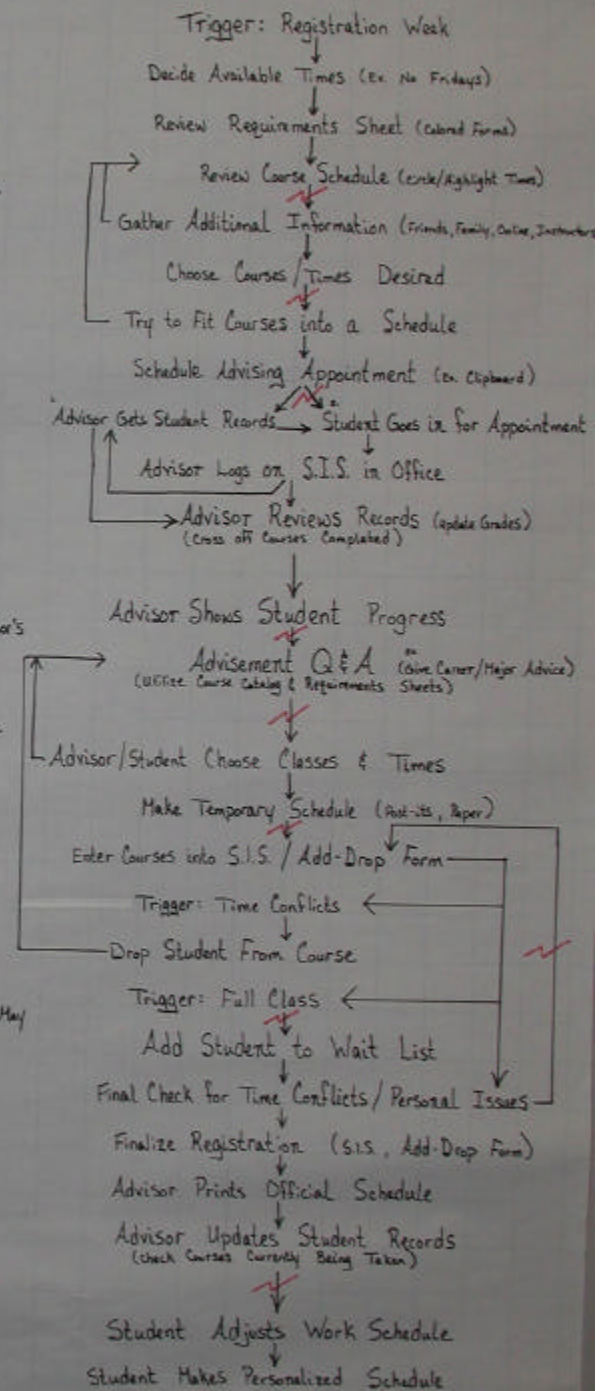 Trigger: Registration Week
Decide Available Times (Ex. No Fridays)
Review Requirements Sheet (Colored Forms)
Review Course Schedule (Circle/Highlight Times)
Gather Additional Information (Friends, Family, Online, Instructors
Choose Courses/Times Desired
Try to Fit Courses into a Schedule
Schedule Advising Appointment (Ex. Clipboard)
Advisor Gets Student Records
Student Goes in for Appointment
Advisor Logs on S.I.S. in Office
Advisor Reviews Records (Update Grades)
(Cross off Courses Completed)
Advisor Shows Student Progress
or's
Advisement Q & A (Give Career/Major Advice)
(Utilize Course Catalog & Requirements Sheets)
Advisor/Student Choose Classes & Times
Make Temporary Schedule (Post-its, Paper)
Enter Courses into S.I.S. / Add-Drop Form
Trigger: Time Conflicts
Drop Student From Course
Trigger: Full Class
May
Add Student to Wait List
Final Check for Time Conflicts/Personal Issues
Finalize Registration (S.I.S., Add-Drop Form)
Advisor Prints Official Schedule
Advisor Updates Student Records
(Check Courses Currently Being Taken)
Student Adjusts Work Schedule
Student Makes Personalized Schedule